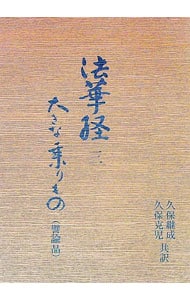 法華経 三
大きな乗りもの
(譬諭品)
久保継成
久保克児 共訳